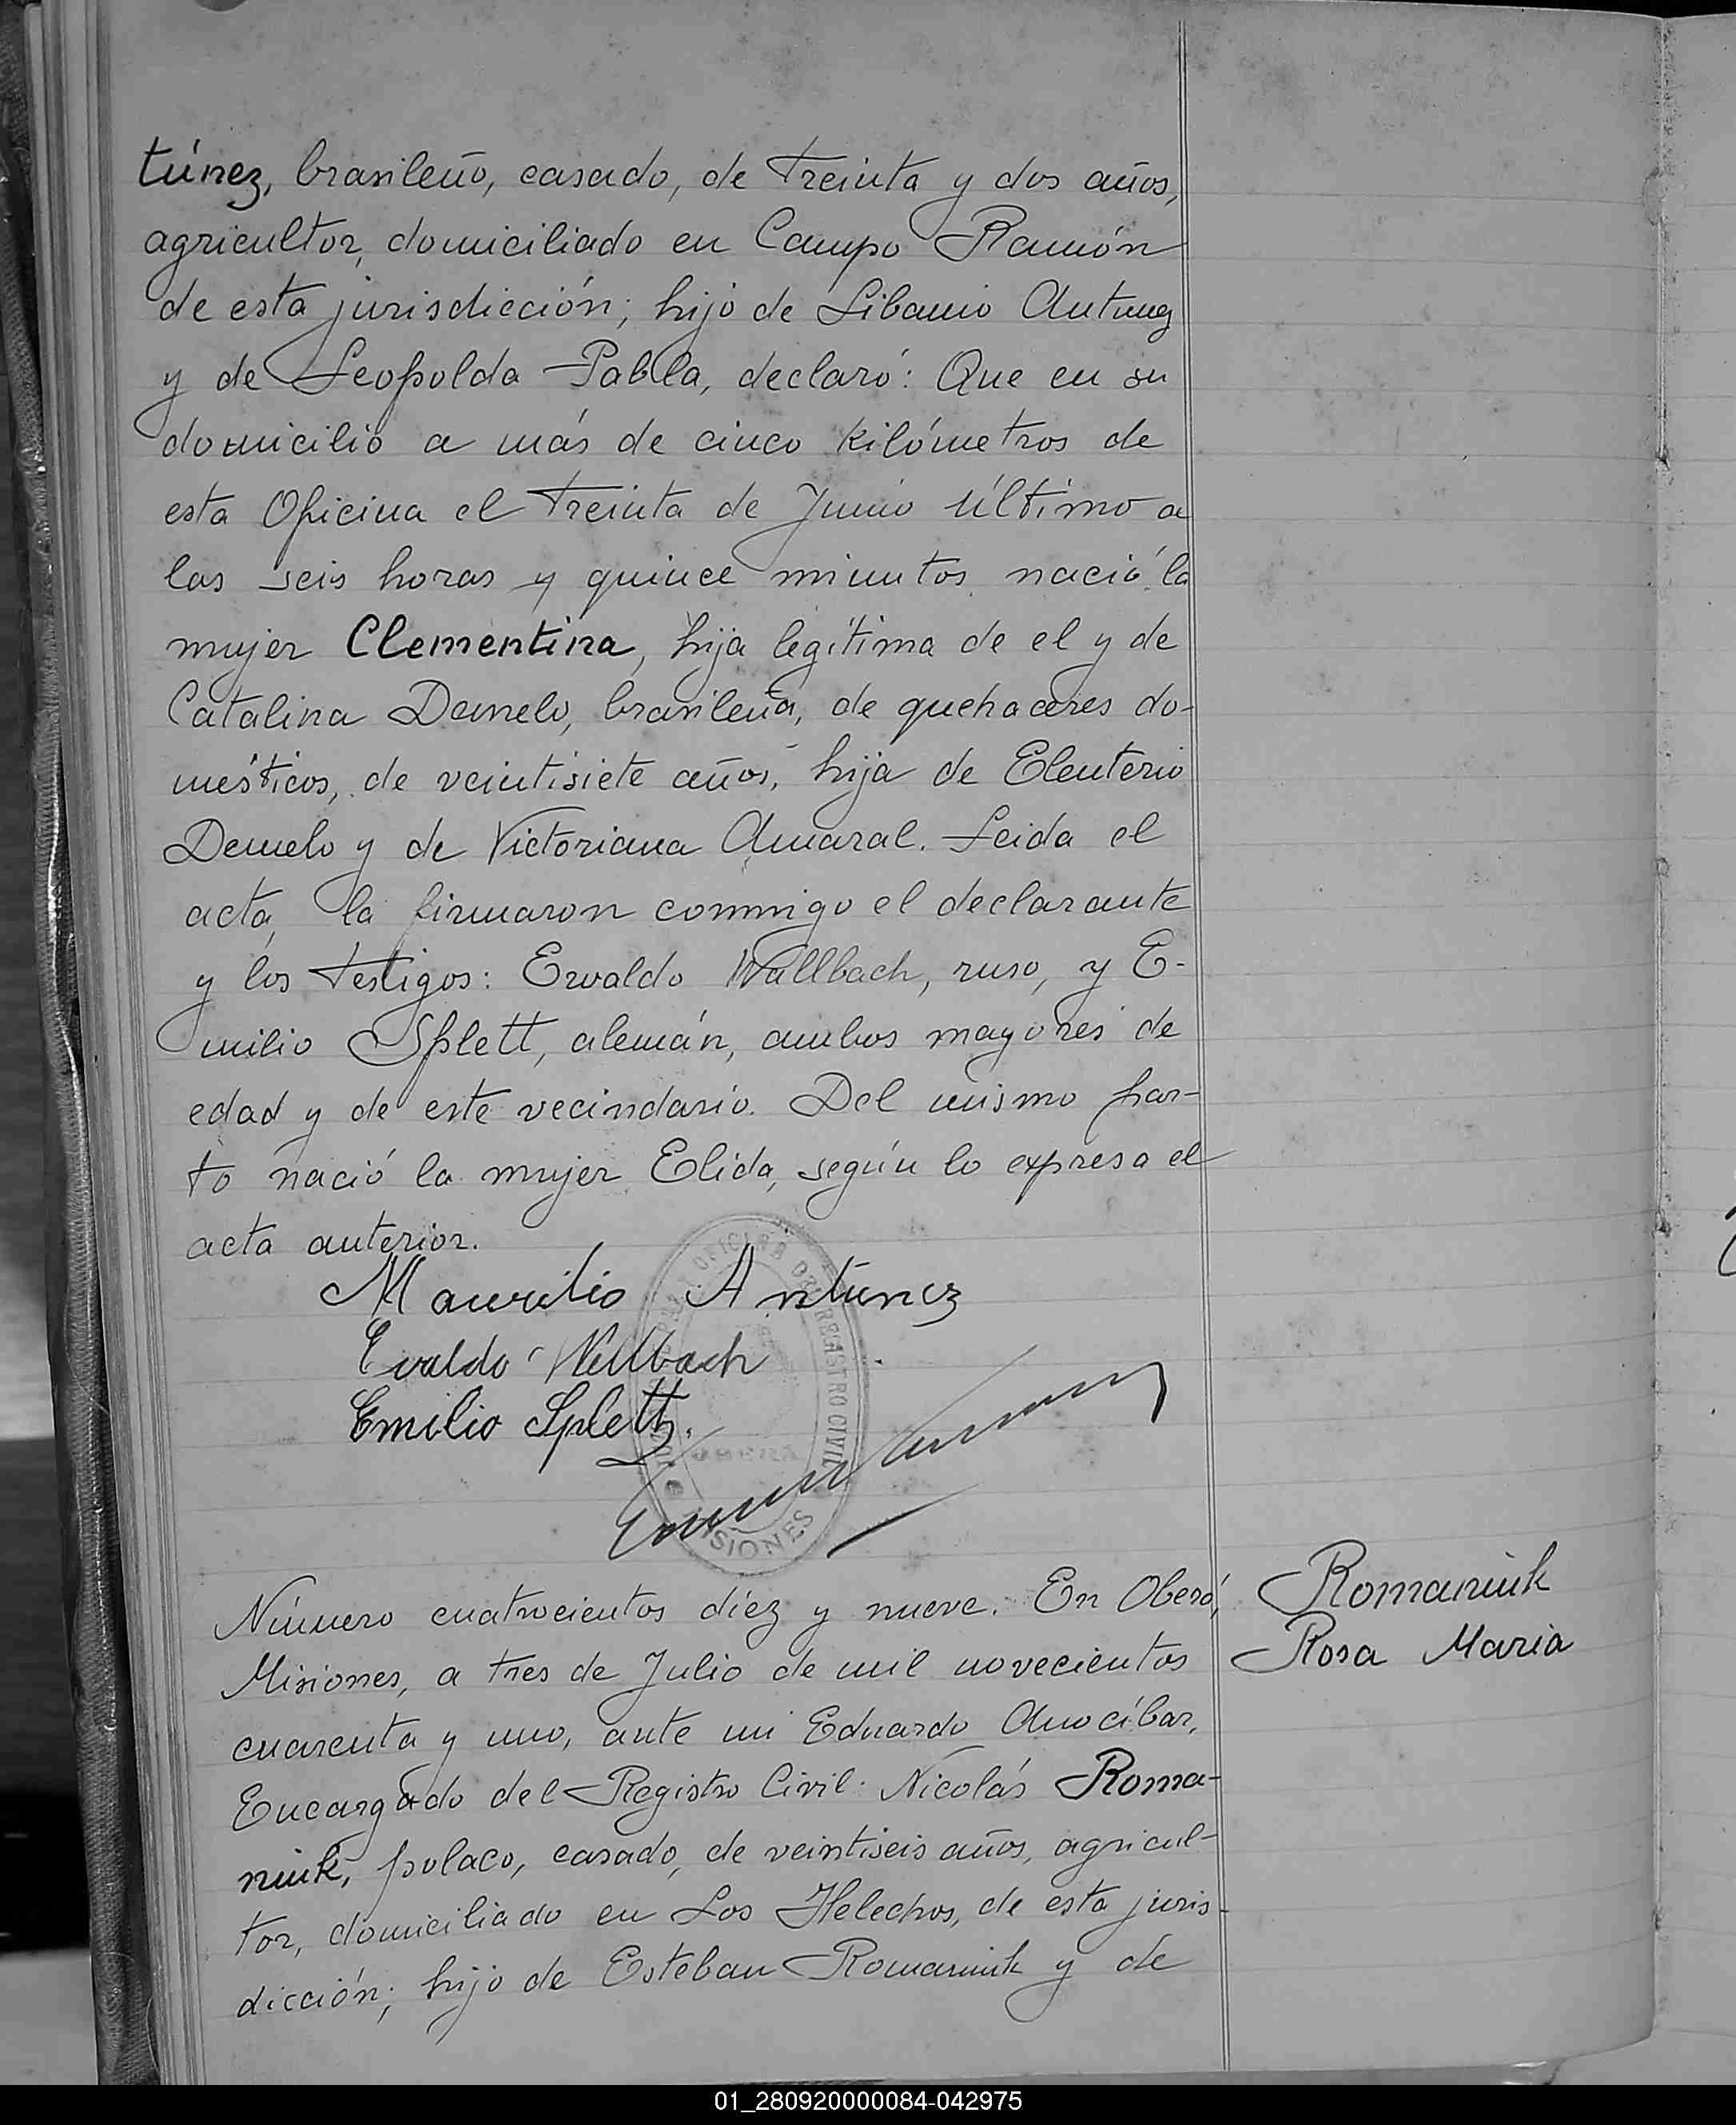 túnez, brasileño, casado, de treinta y dos años,
agricultor, domiciliado en Campo Ramón
de esta jurisdicción; hijo de Libanio Antunez
y de Leopolda Pabla, declaró: Que en su
domicilio a más de cinco kilómetros de
esta Oficina el treinta de Junio último a
las seis horas y quince minutos nació la
mujer Clementina, hija legítima de el y de
Catalina Demelo, brasileña, de quehaceres do-
mésticos, de veintisiete años, hija de Eleuterio
Demelo y de Victoriana Amaral. Leida el
acta, la firmaron conmigo el declarante
y los testigos: Ewaldo Wallbach, ruso, y E-
milio Splett, alemán, ambos mayores de
edad y de este vecindario. Del mismo par-
to nació la mujer Elida, según lo expresa el
acta anterior.
Maurilio Antunez
Evaldo Wallbach
Emilio Splett.
OFICINA DEL REGISTRO CIVIL
MISIONES
Número cuatrocientos diez y nueve. En Oberá,
Misiones, a tres de Julio de mil novecientos
cuarenta y uno, ante mi Eduardo Anocíbar,
Encargado del Registro Civil: Nicolás Roma-
niuk, polaco, casado, de veintiseis años, agricul-
tor, domiciliado en Los Helechos, de esta juris-
dicción; hijo de Esteban Romaniuk y de
Romaniuk
Rosa Maria
01_280920000084-042975